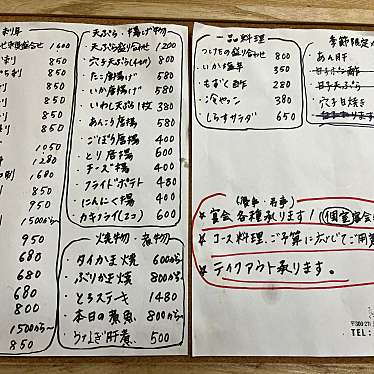 刺身
1600
850
850
850
850
1050
1280
850
950
1500から
950
680
680
680
800
1500から
850
天ぷら・揚げ物
・天ぷら盛り合わせ 1200
・穴子天ぷら(4コ入り) 800
・たこ唐揚げ 580
・いか唐揚げ 580
・いわし天ぷら1枚 380
・あんこう唐揚 580
・ごぼう唐揚 400
・とり唐揚 600
・チーズ揚 480
・フライドポテト 480
・にんにく揚 480
・カキフライ(5コ) 600
焼物・煮物
・タイかま焼 600から
・ぶりかま焼 800から
・とろステーキ 1480
・本日の煮魚 800から
・うなぎ肝煮 500
一品料理
800
・いか塩辛 350
・もずく酢 280
・冷やっこ 380
・しらすサラダ 650
季節限定
・あん肝
・穴子白焼き
(慶事・弔事)
★宴会各種承ります! (個室宴会
★コース料理、ご予算に応じてご用意
★テイクアウト承ります。
〒300-27
TEL: